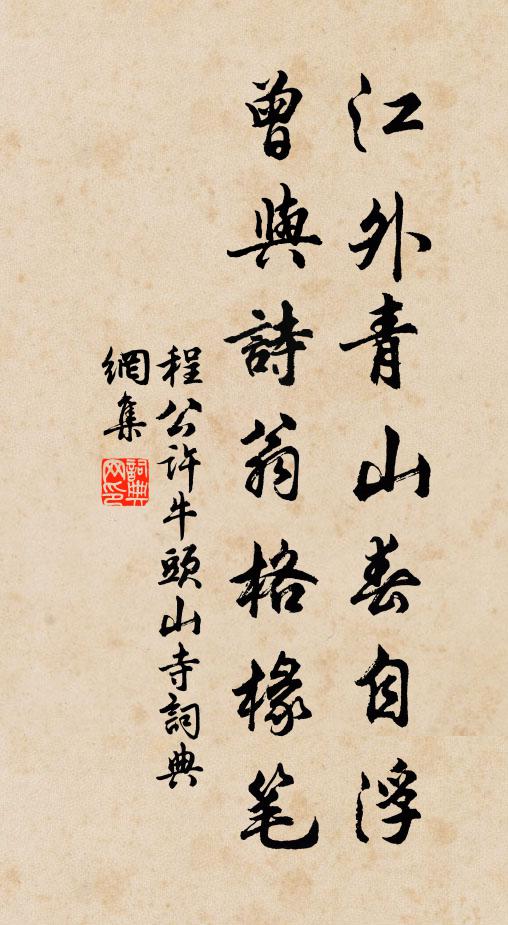 江外青山春自浮
曾與詩翁格椽笔
程公许牛頭山寺詞典
網集
詞典
网印